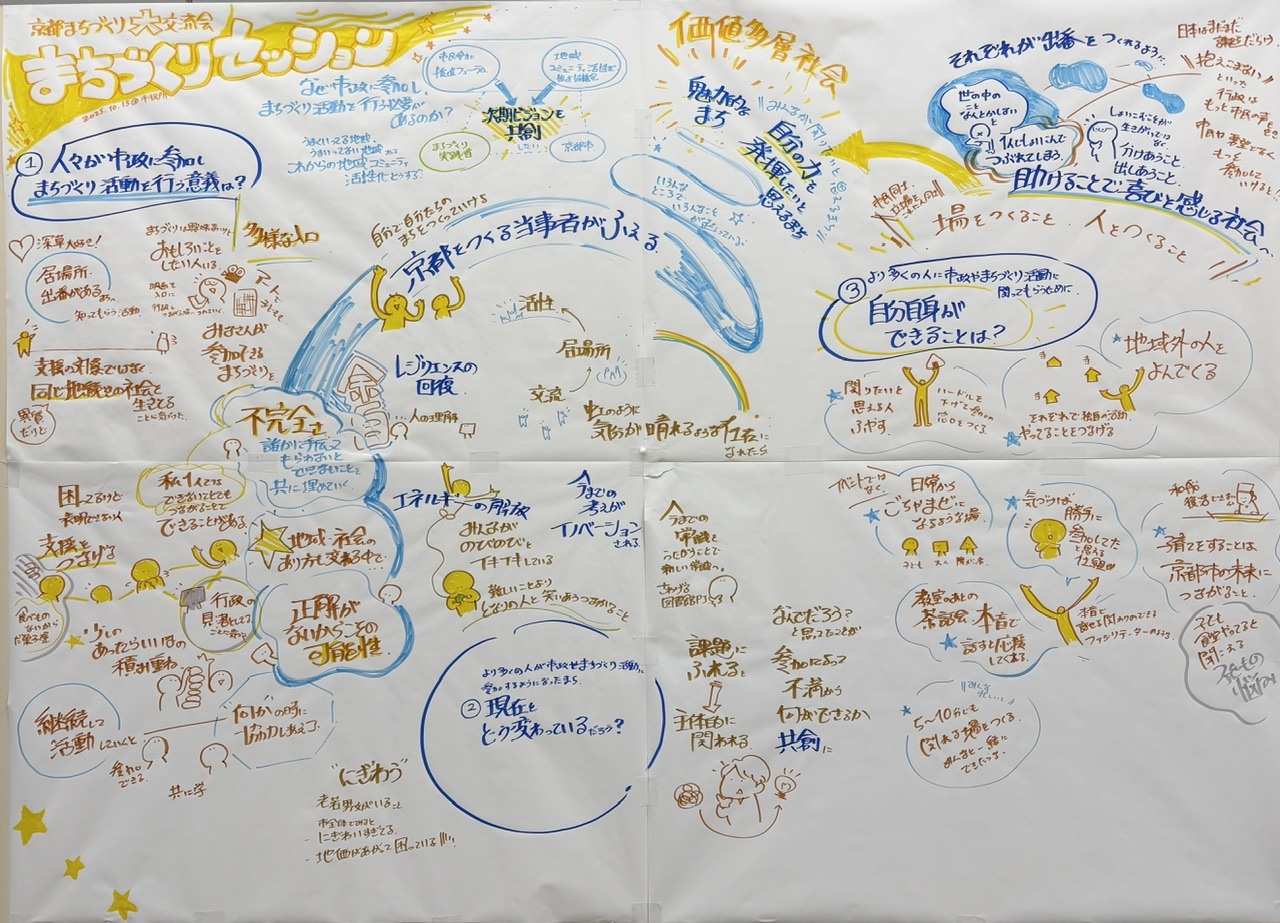 京都まちづくり大交流会
まちづくりセッション
2025.10.13@市役所
なぜ市政に参加し、
まちづくり活動を行う必要が
あるのか?
うまくいってる地域、
うまくいってない地域がある
これからの地域コミュニティ
活性化どうする?
市民参加
推進フォーラム
地域
コミュニティ活性化
推進協議会
次期ビジョンを
共創
したい
まちづくり
実践者
京都市
① 人々が市政に参加し
まちづくり活動を行う意義は?
深草大好き!
居場所
出番がある
まちへ
知ってもらう活動
まちづくりは興味あるけど
おもしろいことを
したい人いる。
多様な入口
みなさんが
参加できる
まちづくりを
支援の対象ではなく
同じ地続きの社会を
生きてる
ことに気づいた。
異質
だけど
自分で自分たちの
まちをつくっていける
京都をつくる当事者がふえる
レジリエンスの
回復
人の理解
活性
居場所
交流
虹のように
気分が晴れるような存在に
なれたら
不完全さ
誰かに手伝って
もらわないと
できないことを
共に埋めていく
私1人では
できないことでも
つながることで
できることがある
困ってるけど
表明できない人
支援を
つなげる
食べもの
ないから
だ菓子屋
行政の
見落としてる
ことに気づく
少しの
あったらいいなの
積み重ね
地域・社会の
あり方も変わる中で
正解が
ないからこその
可能性
継続して
活動していくと
参加
できる
共に学
何かの時に
協力しあえる
“にぎわう”
老若男女がいること
市全体でみると
・にぎわいすぎてる
・地価があがって困っている!!!
エネルギーの解放
みんなが
のびのびと
イキイキしている
難しいことより
となりの人と笑いあうつながること
今までの
考えが
イノベーション
される
より多くの人が市政やまちづくり活動に
参加するようになったまち
② 現在と
どう変わっているだろう?
価値多層社会
魅力的な
まち
みんなが関わりたいと思えるまち
自分の力を
発揮したいと
思えるまち
いろんな
ところで
いろんなこと
が起こっている
それぞれが出番をつくれるよう。
世の中の
こと
なんとかしない
1人でしょいこんで
つぶれてしまう
しょいこむことが
生きがいではなく
分けあうこと
出しあうこと
助けることで喜びと感じる社会へ
日本はまだまだ
課題だらけ
“抱えこまない”
といった
行政は
もっと市民の声をきき
市民は要望でなく
もっと
参加して
いけると
場をつくること 人をつくること
③ より多くの人に市政やまちづくり活動に
関ってもらうために
自分自身が
できることは?
関りたいと
思える人
ふやす
ハードルを
下げて参加の
入口をつくる
それぞれで独自の活動
やってることをつなげる
地域外の人を
よんでくる
今までの
常識を
うたがうことで
新しい常識へ
さわげる
図書館PJ
課題に
ふれると
主体的に
関われる
なんでだろう?
と思ってることが
参加によって
不満から
何ができるか
共創に
イベントではなく
日常から
ごちゃまぜに
なるような場
子ども 大人 障がい者
気づけば
勝手に
参加してた
と思える
仕組み
教室のあとの
茶話会で本音で
話すと応援
してくれる
本音で
商える関わりのできる
ファシリテーターのような
みんな
忙しい…
5~10分でも
関れる場をつくる
みんなと一緒に
できたらな
子育てをすることは
京都市の未来に
つながること
子ども
食堂やってると
聞こえる
子どもの
悩み